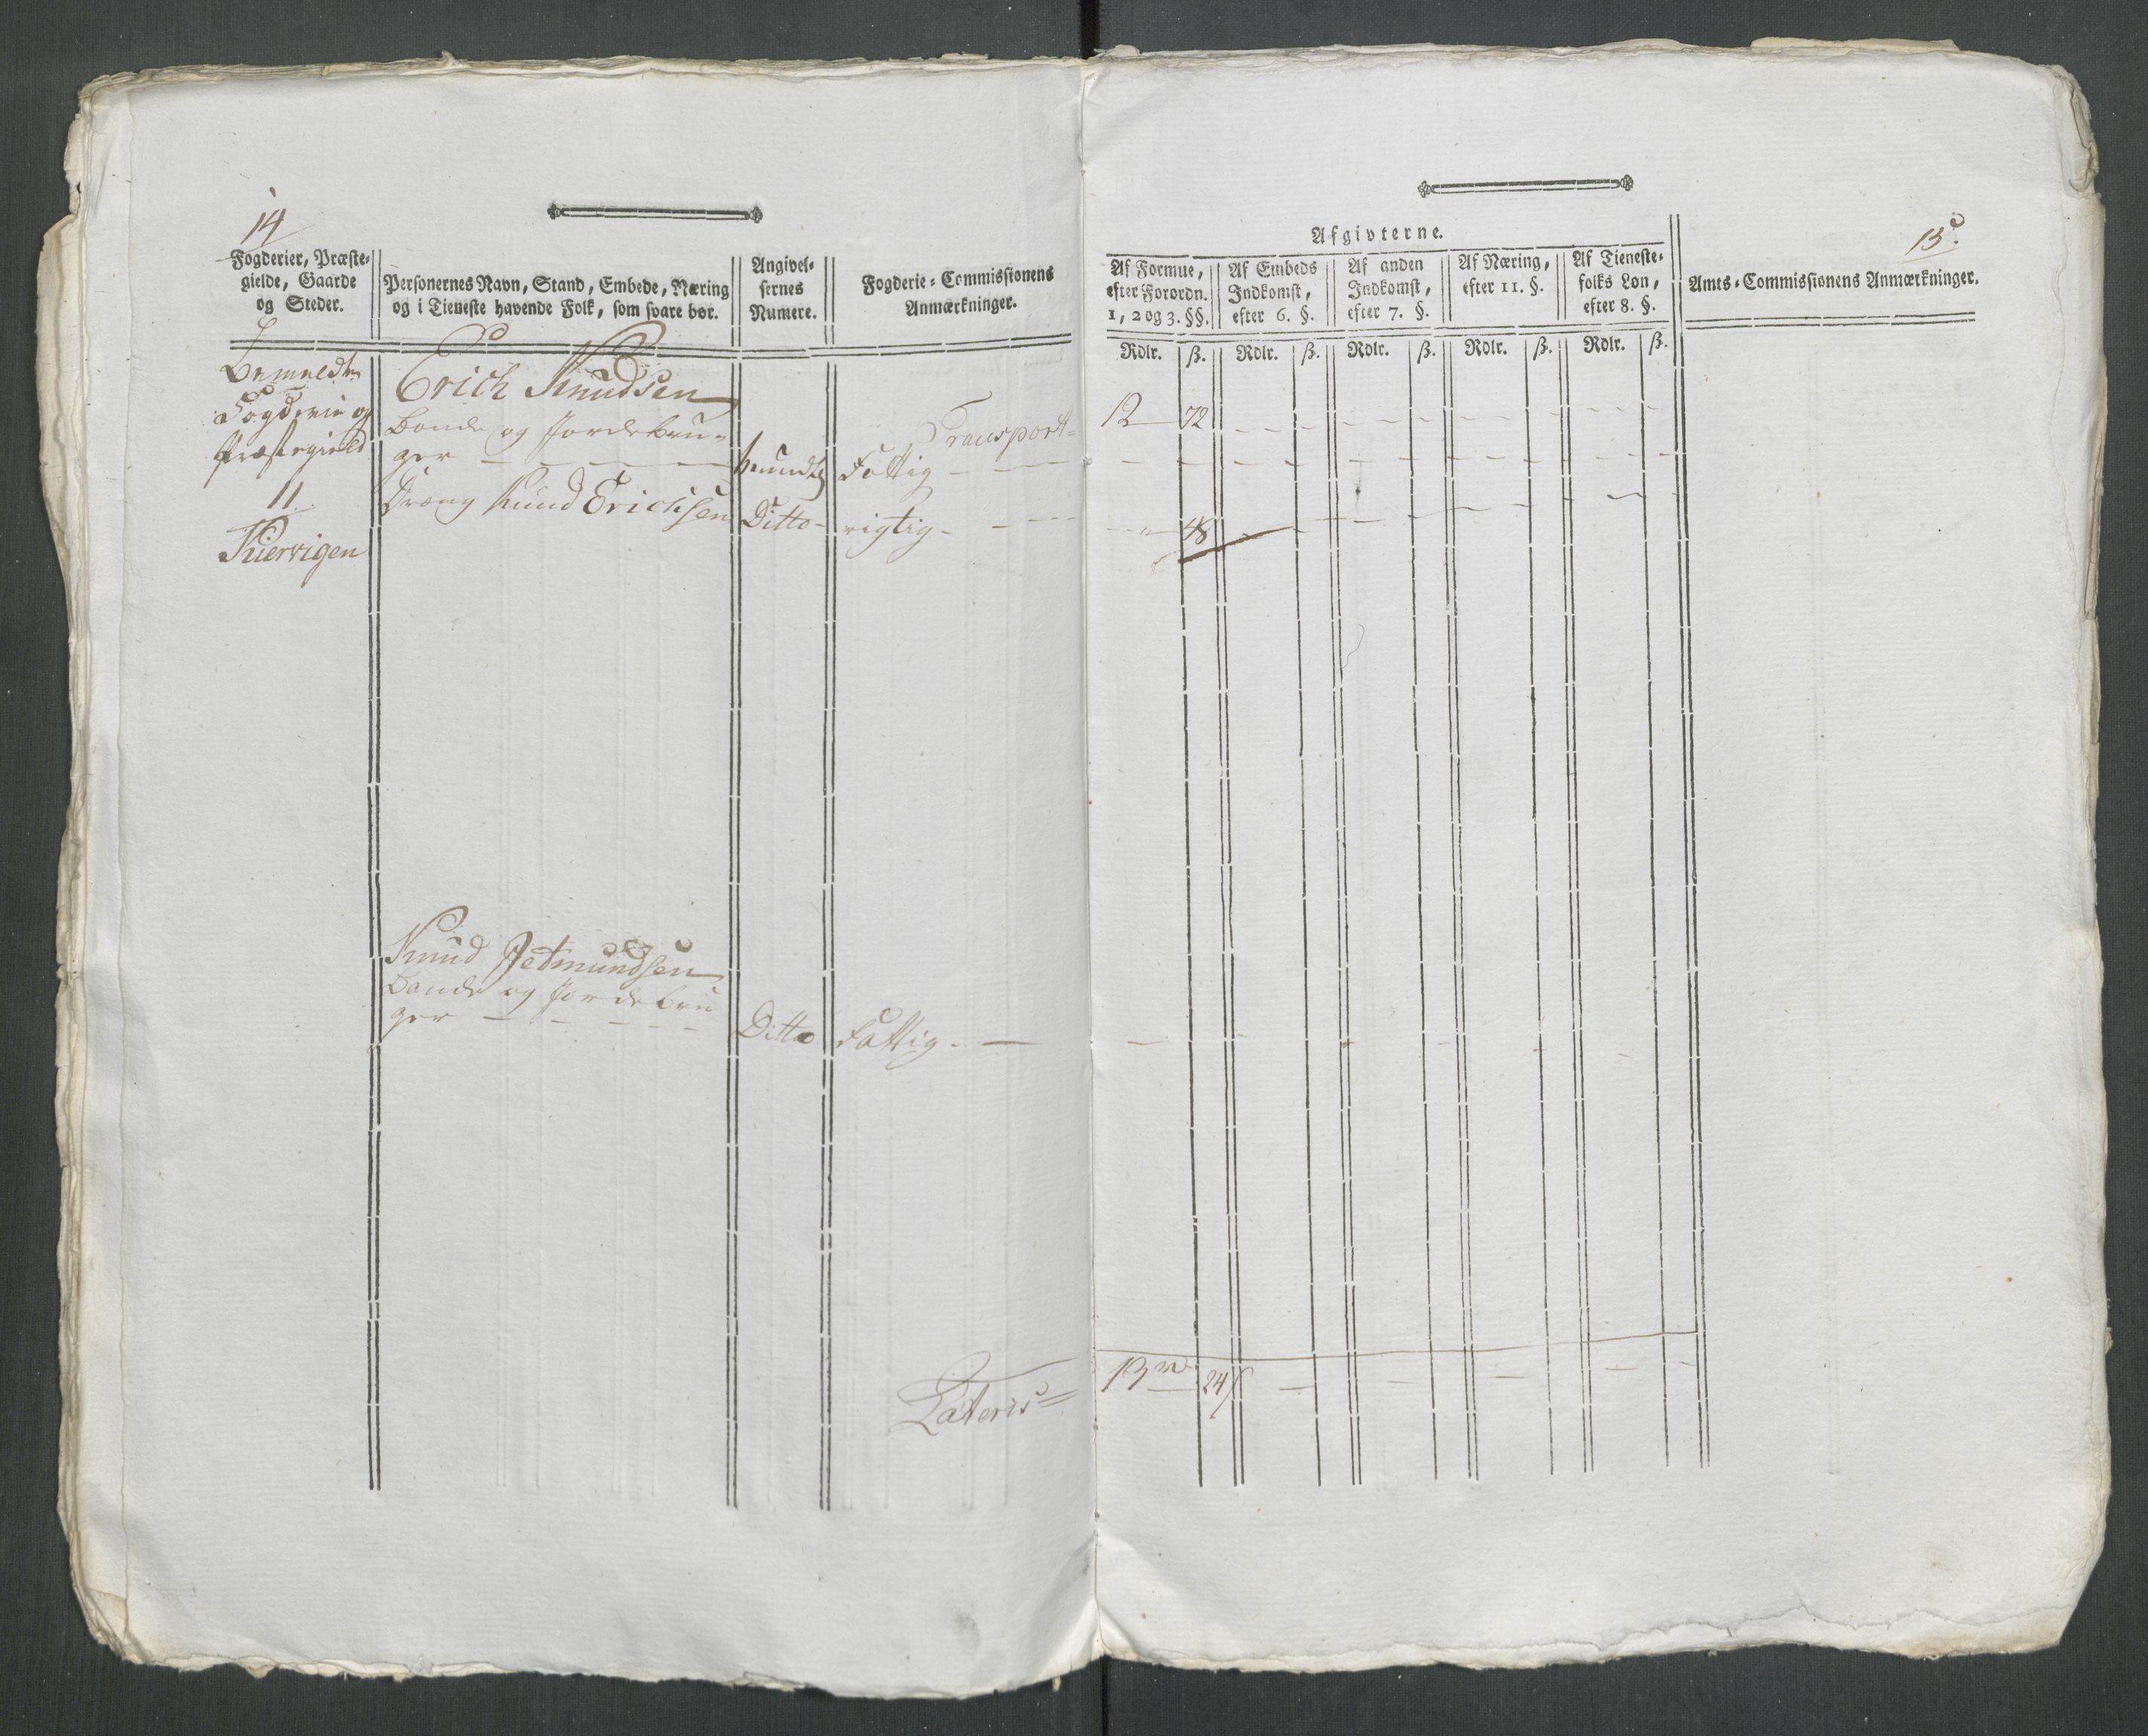 14
Fogderier, Præste-
gielde, Gaarde
og Steder.
Personernes Navn, Stand, Embede, Næring
og i Tieneste havende Folk, som svare bør.
Angivel-
sernes
Numere.
Fogderie-Commissionens
Anmærkninger.
Bemeldte
Fogderie og
Præstegield
11
Kuervigen
Erich Knudsen
Bonde og Jordebru-
ger
mundtl
Fattig
Transport
Dreng Knud Erichsen
Ditto
rigtig
Knud Jetmundsen
Bonde og Jordebru
ger
Ditto
Fattig
Lateris
15
Afgivterne.
Af Formue,
efter Forordn.
1, 2 og 3. §§.
Af Embeds
Indkomst,
efter 6. §.
Af anden
Indkomst,
efter 7. §.
Af Næring,
efter 11. §.
Af Tieneste-
folks Løn,
efter 8. §.
Amts-Commissionens Anmærkninger.
Rdlr. ß. Rdlr. ß. Rdlr. ß. Rdlr. ß. Rdlr. ß.
12 72
48
13 24